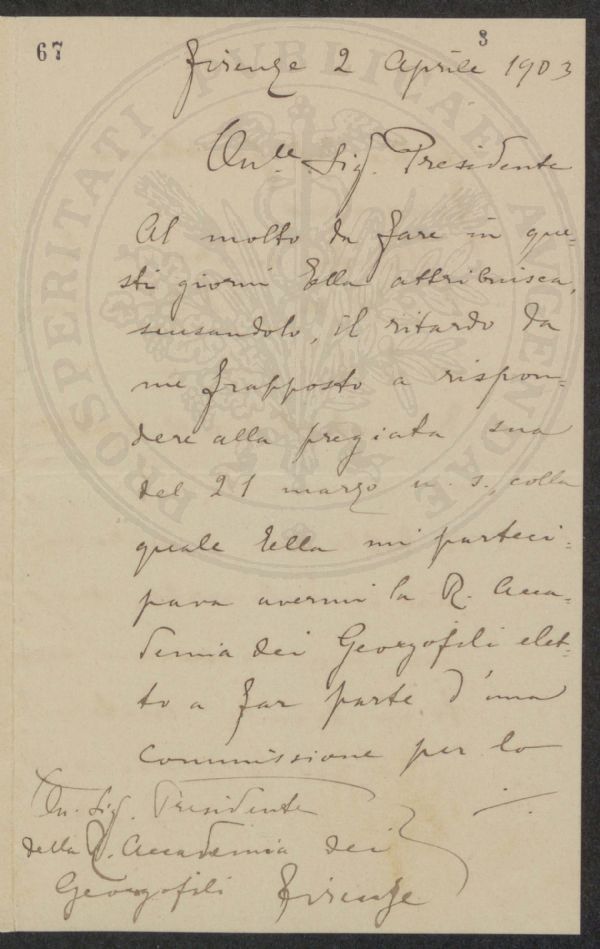 67
3
Firenze 2 Aprile 1903
On.le Sig. Presidente
Al molto da fare in que-
sti giorni Ella attribuisca,
scusandolo, il ritardo da
me frapposto a rispon-
dere alla pregiata sua
del 21 marzo u. s., colla
quale Ella mi parteci-
pava avermi la R. Acca-
demia dei Georgofili elet-
to a far parte d'una
Commissione per lo
On. Sig. Presidente
della R. Accademia dei
Georgofili Firenze
PROSPERITATI PUBLICAE AUGENDAE